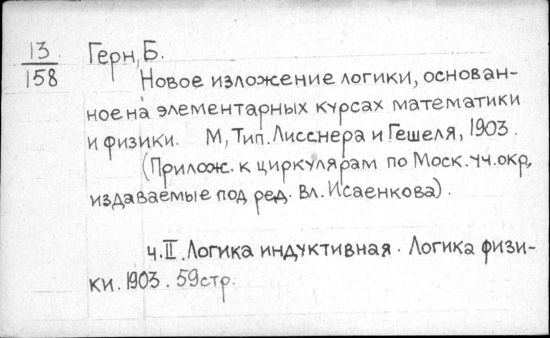 13 Герн, Б.
158
Новое изложение логики, основан-
ное на элементарных курсах математики
и физики. М, Тип. Лисснера и Гешеля, 1903.
(Прилож. к циркулярам по Моск. уч. окр.,
издаваемые под ред. Вл. Исаенкова).
ч. II. Логика индуктивная. Логика физи-
ки. 1903. 59 стр.